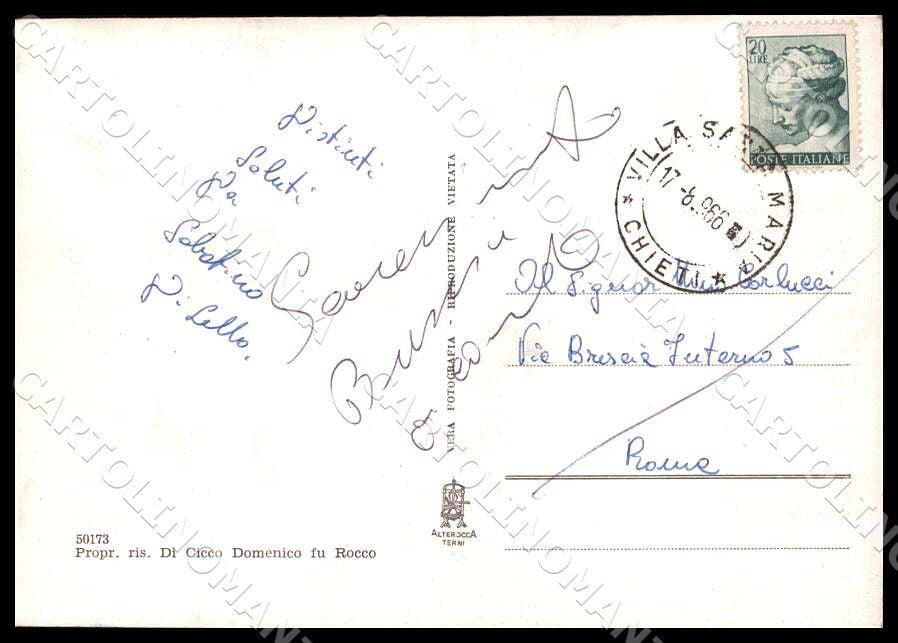 20
LIRE
POSTE ITALIANE
VILLA SANTA MARIA
* CHIETI *
17 -8 966
Distinti
Saluti
Da
Sabatino
Di Lello.
Al Signor Carlucci
Via Brescia Interno 5
Roma
VERA FOTOGRAFIA - RIPRODUZIONE VIETATA
ALTEROCCA
TERNI
50173
Propr. ris. Di Cicco Domenico fu Rocco
CARTOLINOMANIA